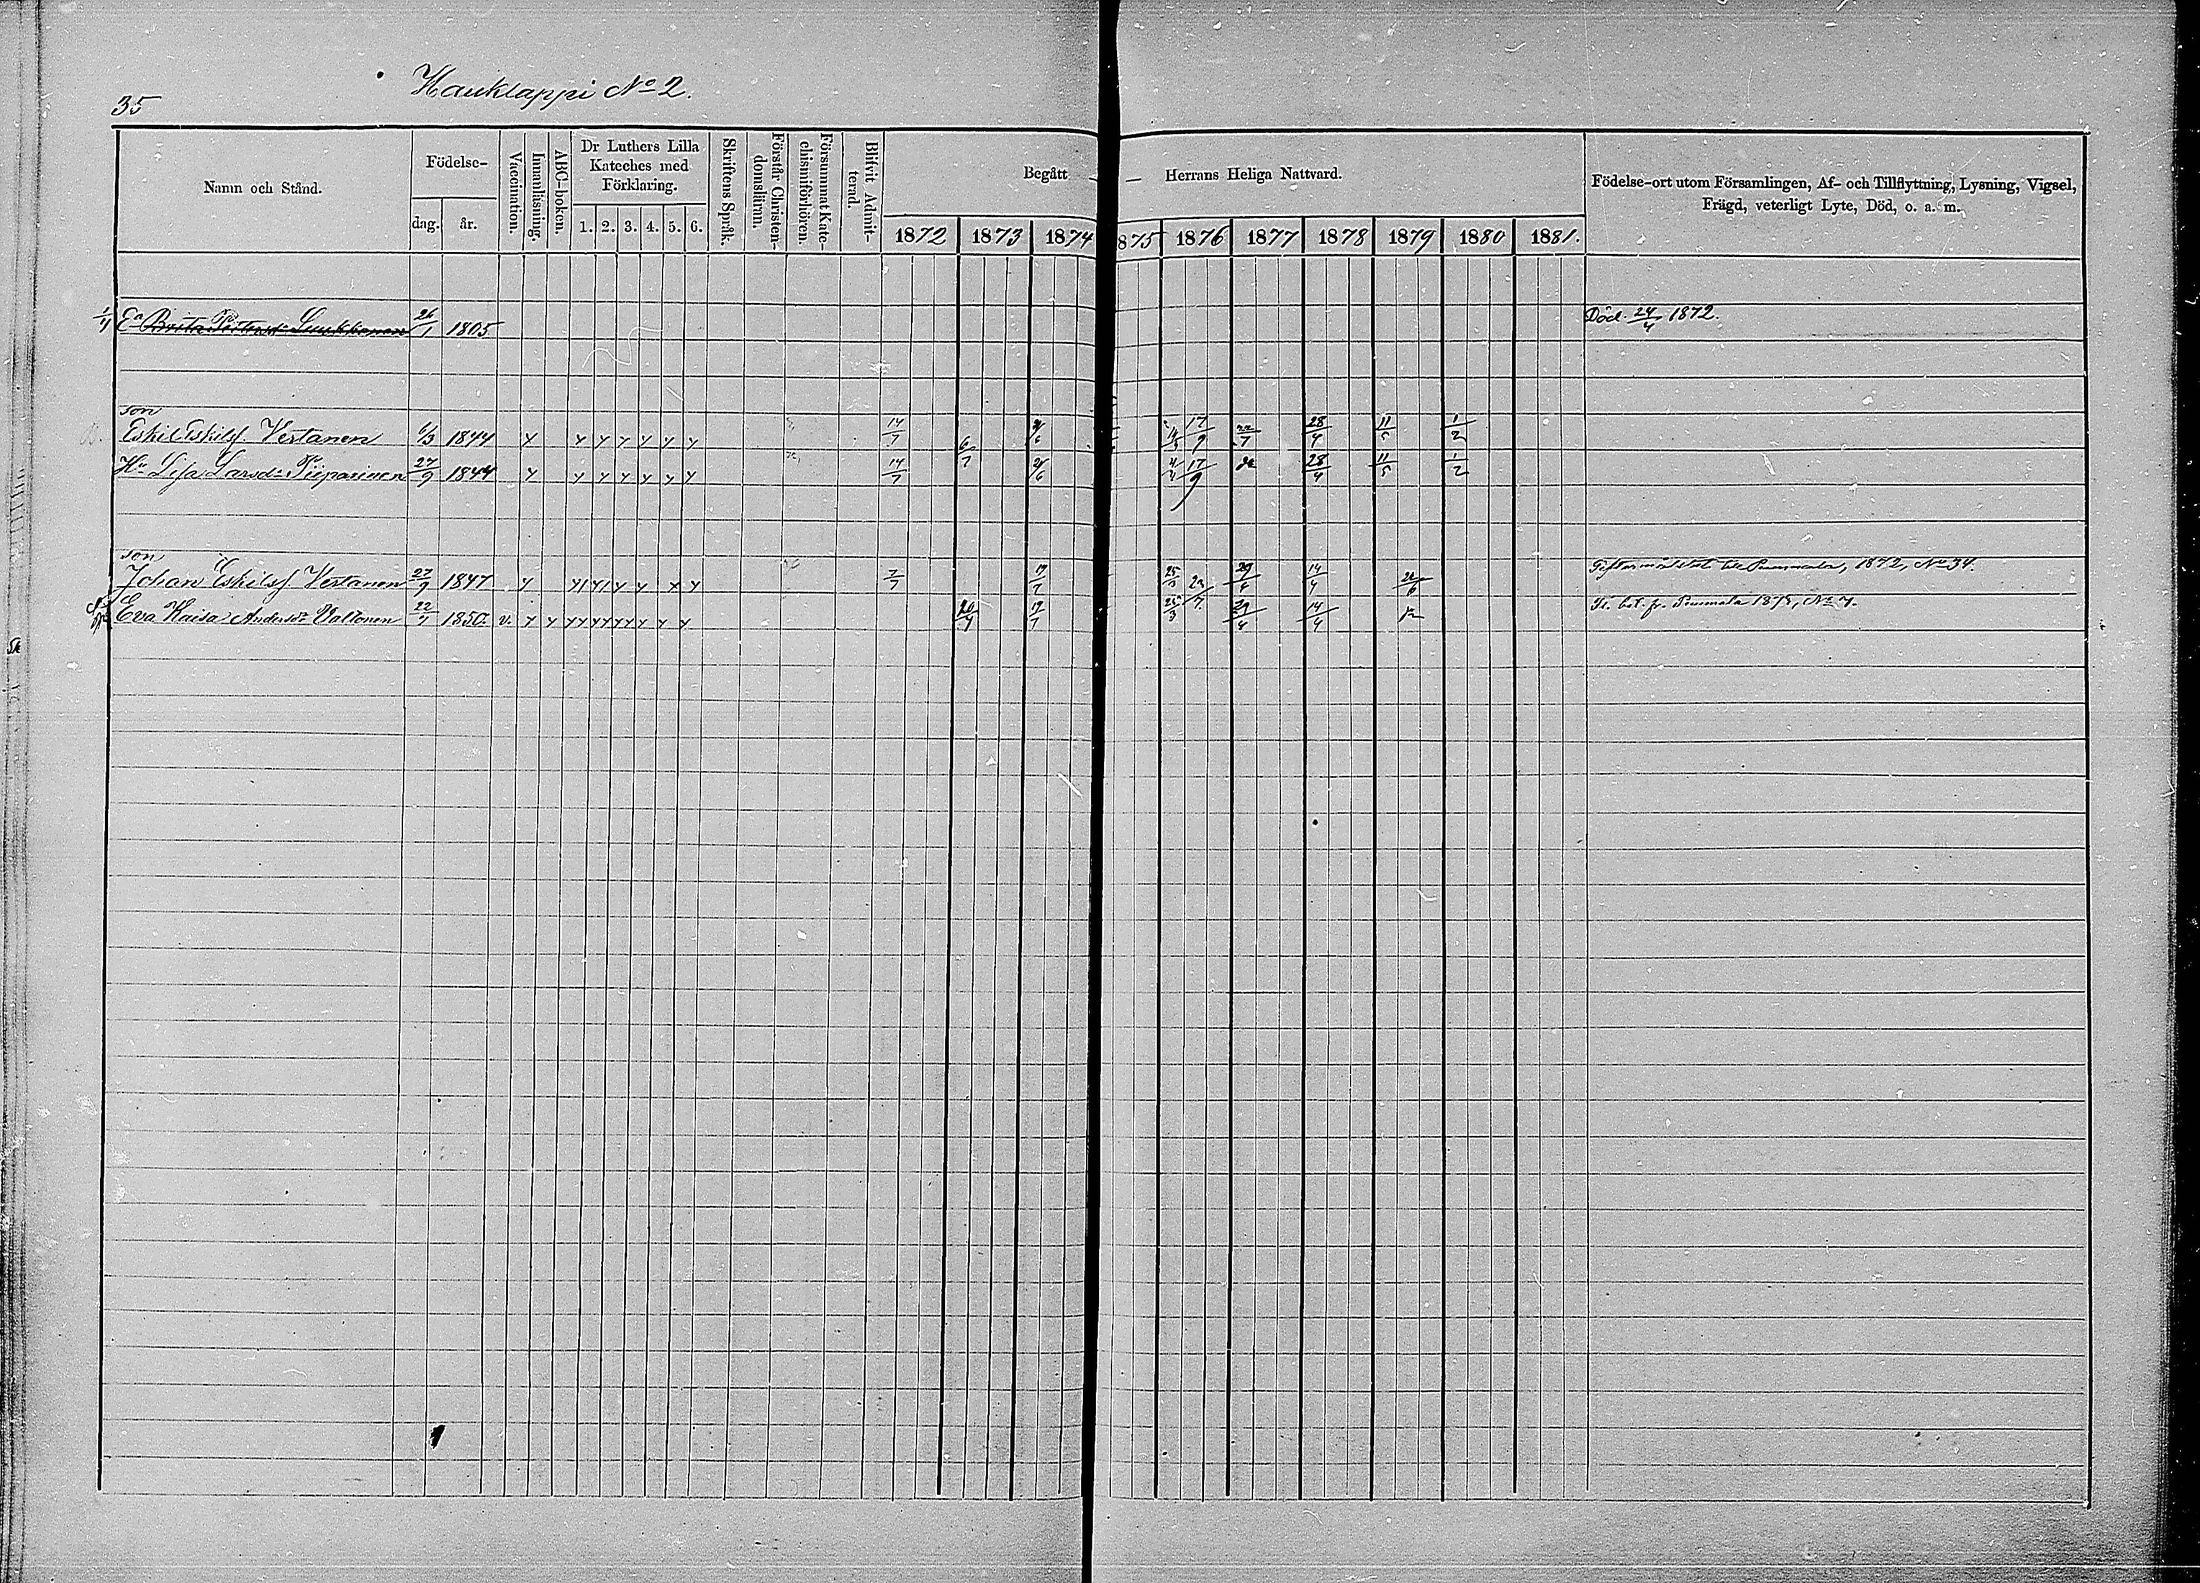 Hauklappi No 2.
35
Namn och Stånd.
Födelse-
dag.
år.
Vaccination.
Innanläsning.
ABC-boken.
Dr Luthers Lilla
Kateches med
Förklaring.
1. 2. 3. 4. 5. 6.
Skriftens Språk.
Förstår Christen-
domsläran.
Försummat Kate-
chismiförhören.
Blifvit Admit-
terad.
Begått — Herrans Heliga Nattvard.
1872 1873 1874 1875 1876 1877 1878 1879 1880 1881.
Födelse-ort utom Församlingen, Af- och Tillflyttning, Lysning, Vigsel,
Frägd, veterligt Lyte, Död, o. a. m.
Ea Brita Pettersdr 26/1 1805 Död 24/4 1872.
son
Eskil Eskilsf. Vertanen 6/3 1844 14/7 6/7 17/9 22/7 28/4 11/5 1/2
Hu Lisa Larsdr Piiparinen 27/9 1844 14/7 17/9 28/4 11/5 1/2
son
Johan Eskilsf Vertanen 27/9 1847 7/7 25/3 29/4 14/4 1872, No 34.
Eva Kaisa Andersdr Valtonen 22/7 1850 v. 20/4 25/3 29/4 14/4 fr. Pummala No 7.